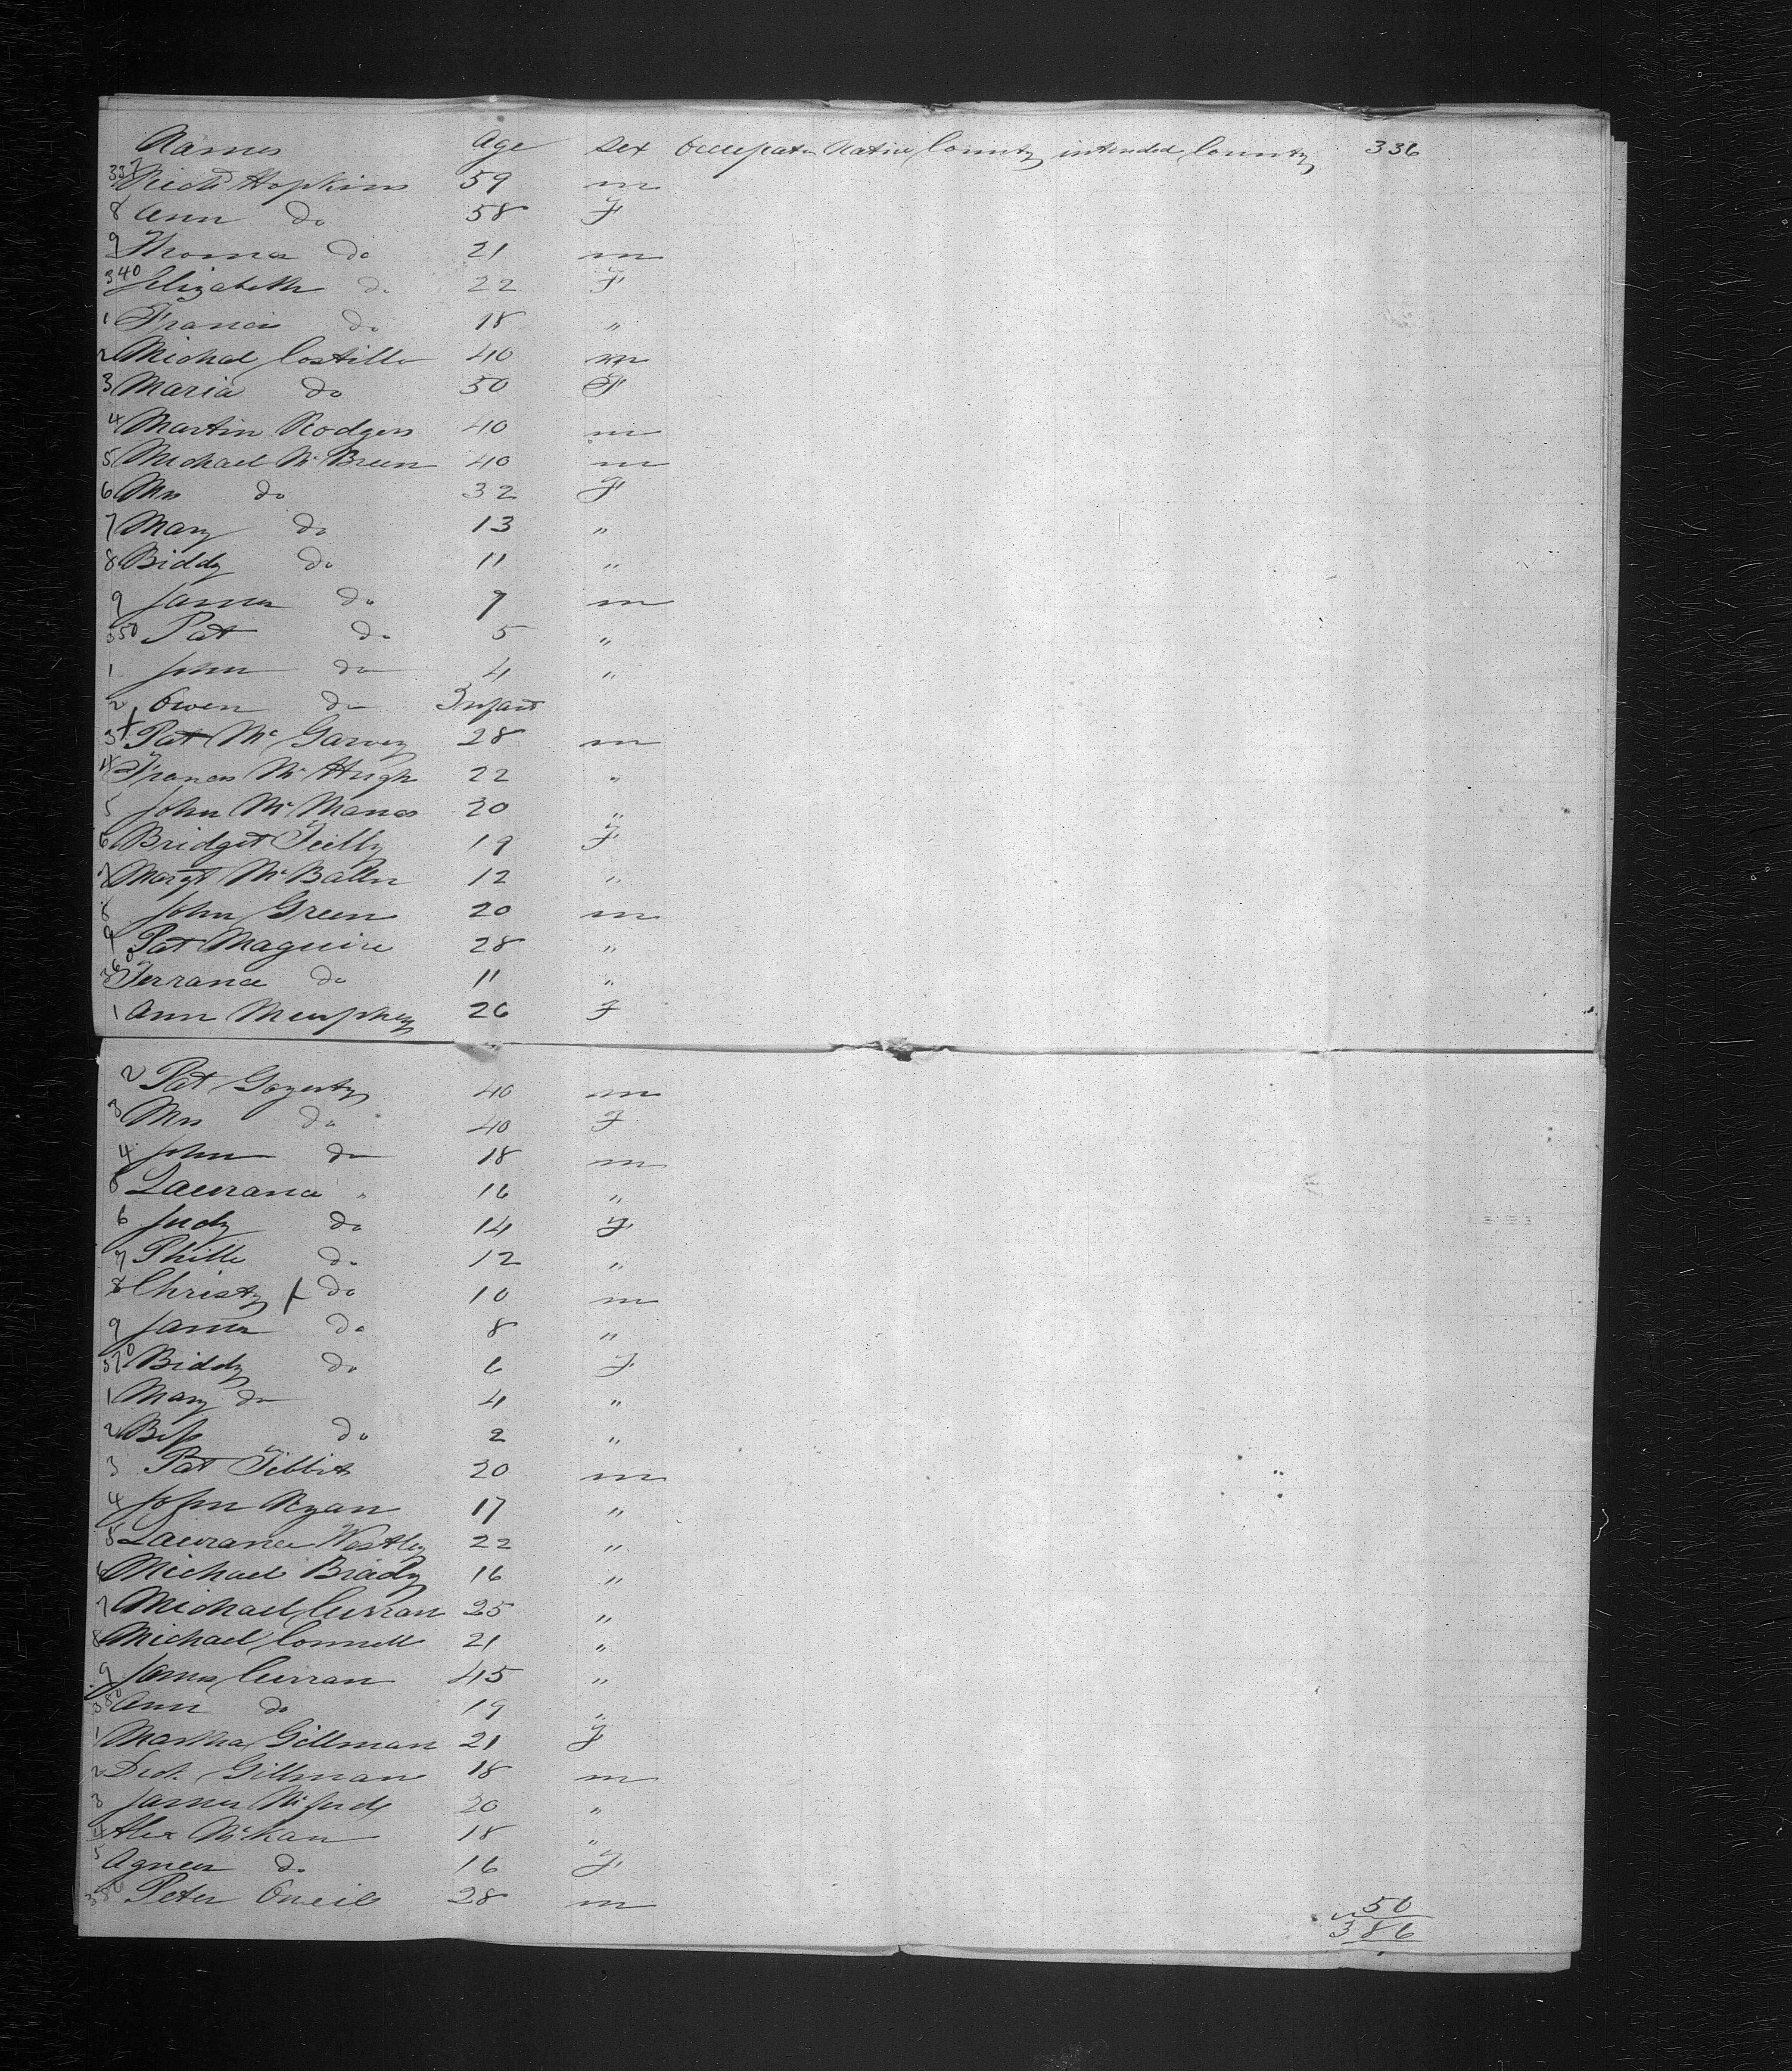 Names Age Sex Occupatn Native County intended County 336
337 Richd Hopkins 59 m
8 Ann do 58 F
9 Thomas do 21 m
340 Elizabeth do 22 F
1 Francis do 18 "
2 Michael Costillo 40 m
3 Maria do 50 F
4 Martin Rodgers 40 m
5 Michael McBreen 40 m
6 Mrs do 32 F
7 Mary do 13 "
8 Biddy do 11 "
9 James do 7 m
350 Pat do 5 "
1 John do 4 "
2 Owen do Infant
3 Pat McGarvey 28 m
4 Francis McHugh 22 "
5 John McManas 20 "
6 Bridget 19 F
7 Margt 12 "
8 John Green 20 m
9 Pat Maguire 28 "
360 Terrance do 11 "
1 Ann Murphey 26 F
2 Pat 40 m
3 Mrs do 40 F
4 John do 18 m
5 Laurance " 16 "
6 Judy do 14 F
7 do 12 "
8 Christy do 10 m
9 James do 8 "
370 Biddy do 6 F
1 Mary do 4 "
2 Bess do 2 "
3 Pat Tibbits 20 m
4 John Ryan 17 "
5 Laurance 22 "
6 Michael Brady 16 "
7 Michael Curran 25 "
8 Michael Connell 21 "
9 James Curran 45 "
380 Ann do 19 "
1 Martha Gillman 21 F
2 Gillman 18 m
3 James 20 "
4 Alex McKan 18 "
5 Agnes do 16 F
386 Peter Oneil 28 m
50
386